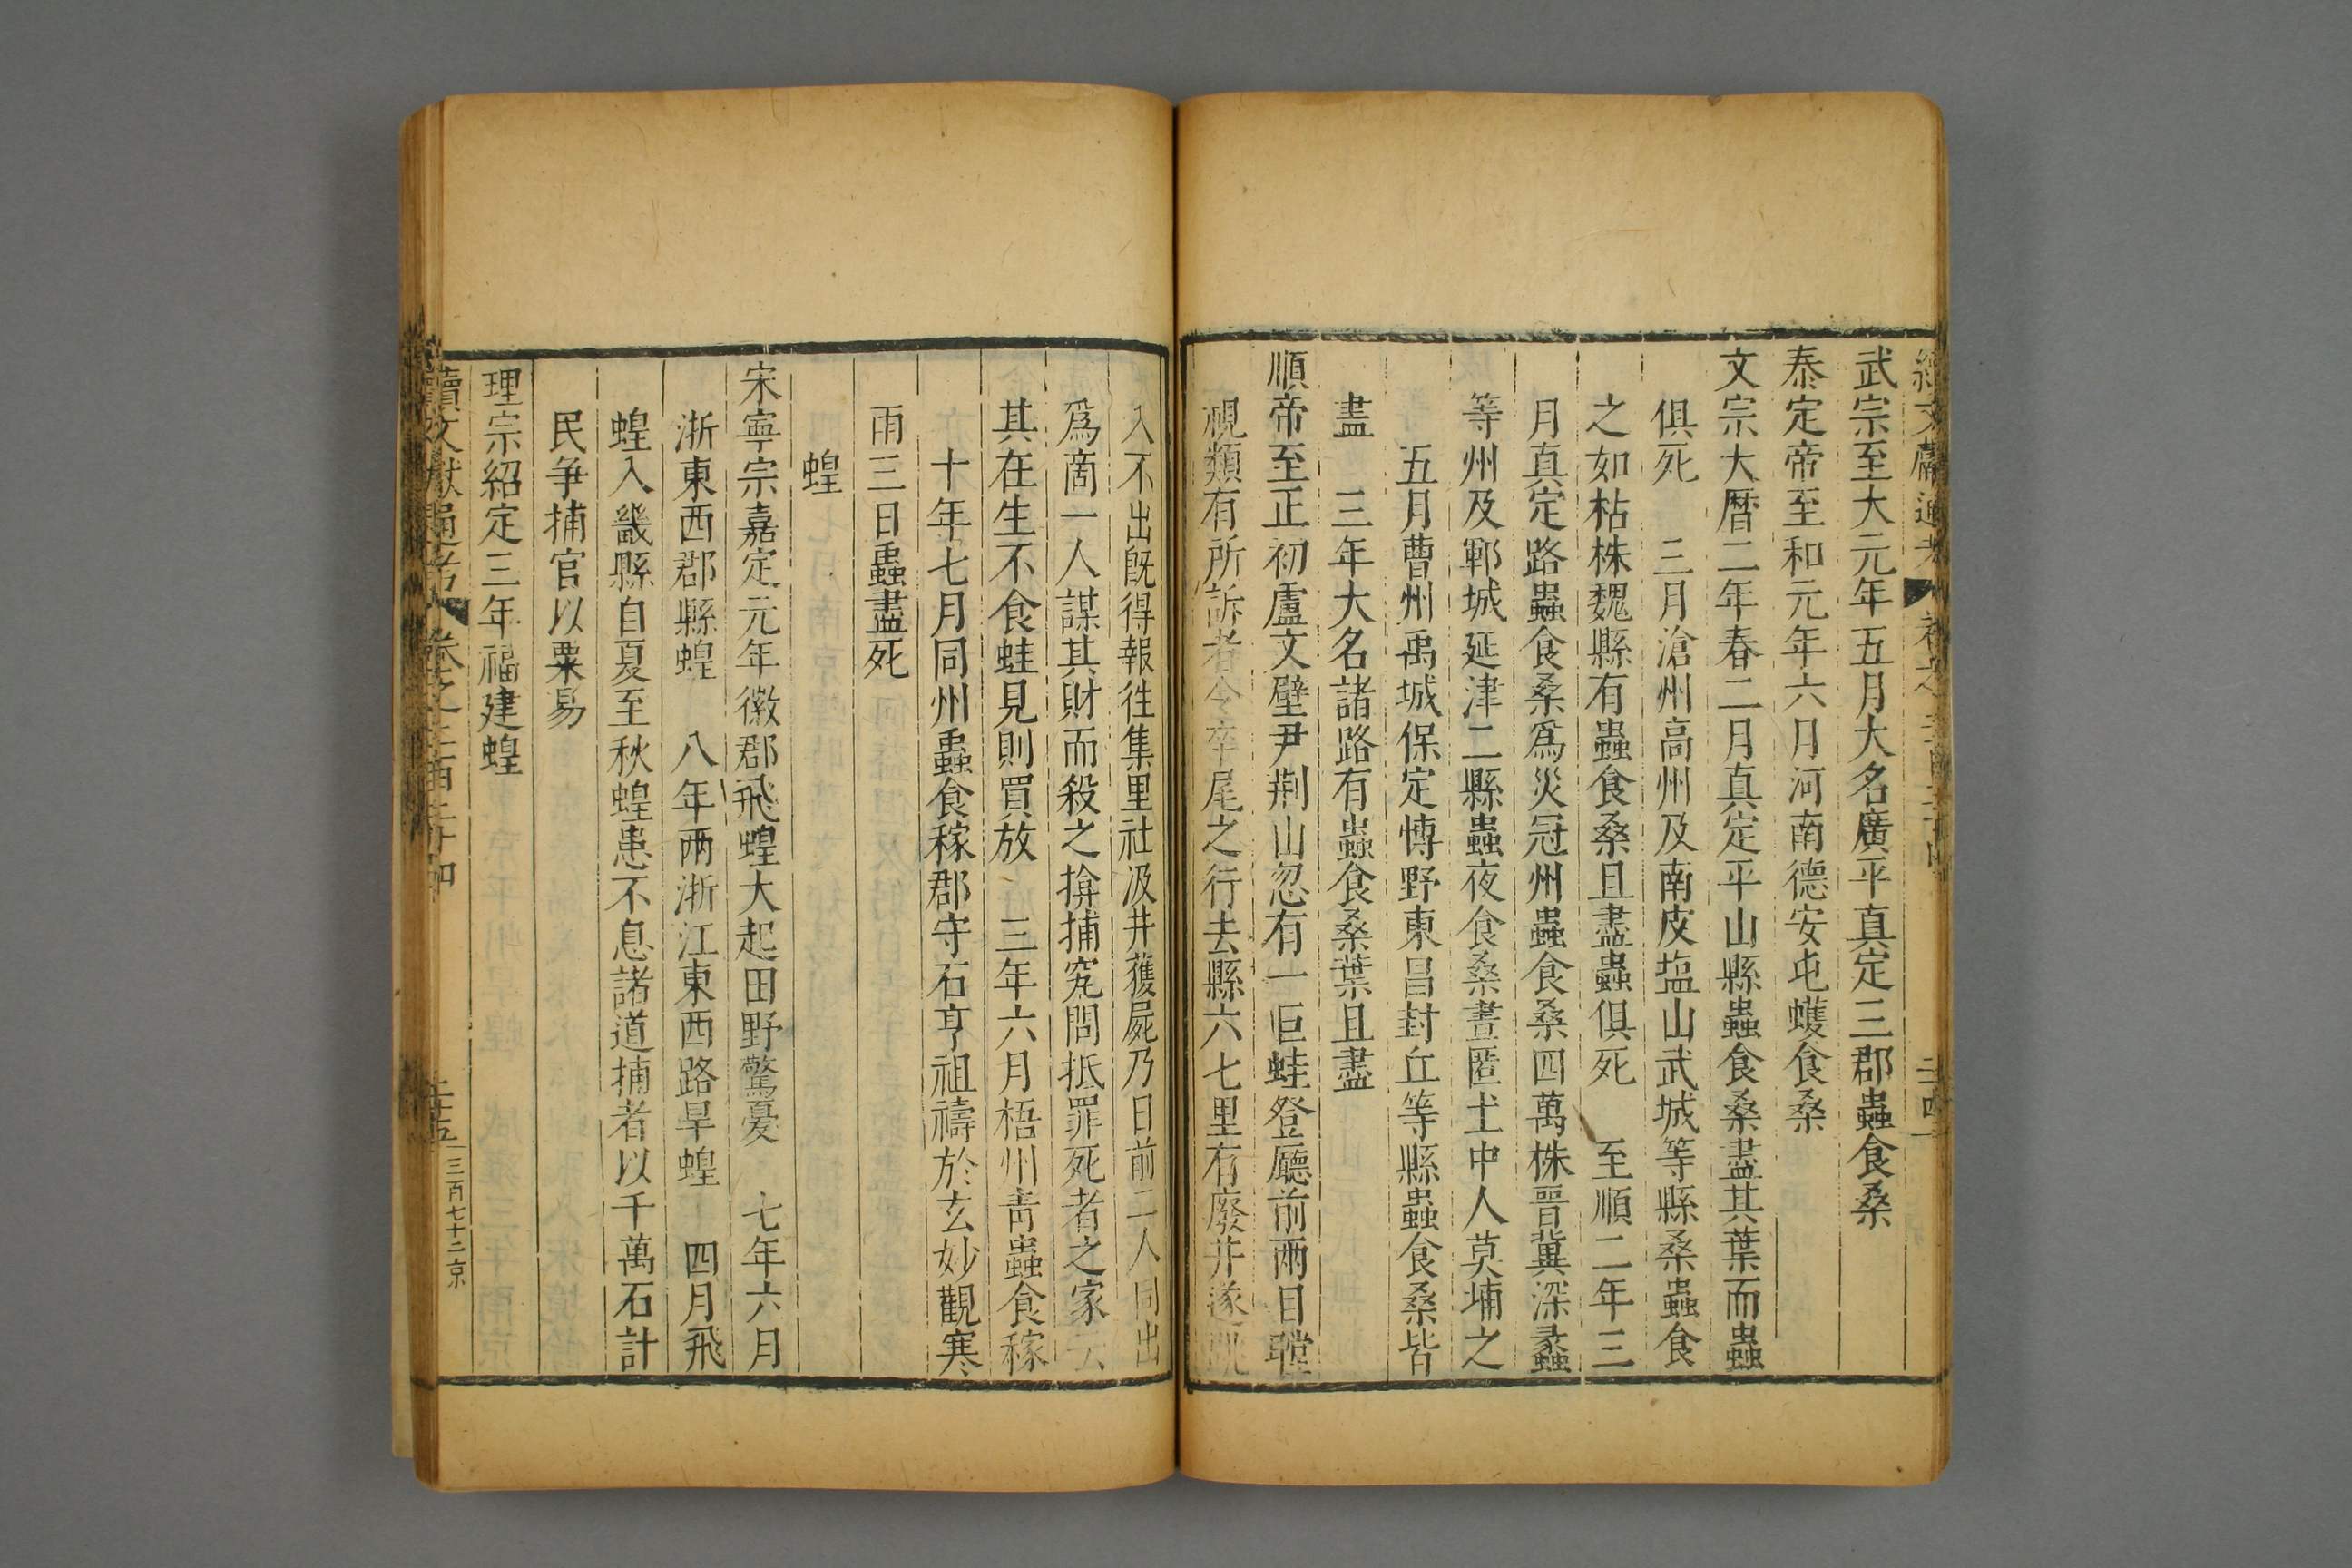 續文獻通考 卷之二百二十四 二十四
武宗至大元年五月大名廣平真定三郡蟲食桑
泰定帝至和元年六月河南德安屯蠖食桑
文宗大曆二年春二月真定平山縣蟲食桑盡其葉而蟲
俱死 三月滄州高州及南皮塩山武城等縣桑蟲食
之如枯株魏縣有蟲食桑且盡蟲俱死 至順二年三
月真定路蟲食桑為災冠州蟲食桑四萬株晉冀深蠡
等州及鄆城延津二縣蟲夜食桑晝匿土中人莫埔之
五月曹州禹城保定愽野東昌封丘等縣蟲食桑皆
盡 三年大名諸路有蟲食桑葉且盡
順帝至正初盧文璧尹荆山忽有一巨蛙登廳前兩目瞠
視類有所訴者令卒尾之行去縣六七里有廢井遂跳
入不出旣得報徃集里社汲井獲屍乃日前二人同出
為商一人謀其財而殺之揜捕究問抵罪死者之家云
其在生不食蛙見則買放 三年六月梧州青蟲食稼
十年七月同州蟲食稼郡守石亨祖禱於玄妙觀寒
雨三日蟲盡死
蝗
宋寧宗嘉定元年徽郡飛蝗大起田野驚憂 七年六月
浙東西郡縣蝗 八年两浙江東西路旱蝗 四月飛
蝗入畿縣自夏至秋蝗患不息諸道捕者以千萬石計
民爭捕官以粟易
理宗紹定三年福建蝗
續文獻通考 卷之二百二十四 二十五 三百七十二京